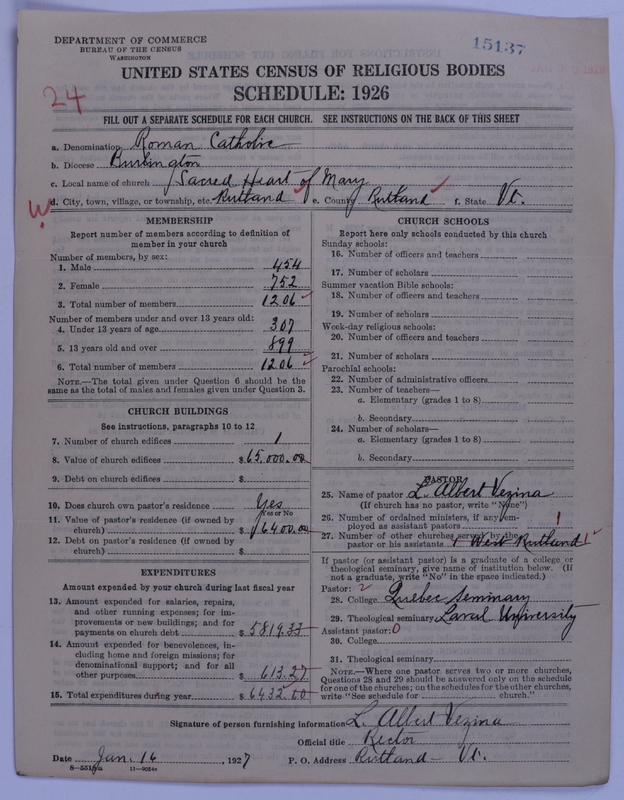 DEPARTMENT OF COMMERCE
BUREAU OF THE CENSUS
WASHINGTON
15137
UNITED STATES CENSUS OF RELIGIOUS BODIES
SCHEDULE: 1926
24
FILL OUT A SEPARATE SCHEDULE FOR EACH CHURCH. SEE INSTRUCTIONS ON THE BACK OF THIS SHEET
a. Denomination Roman Catholic
b. Diocese Burlington
c. Local name of church Sacred Heart of Mary
W. d. City, town, village, or township, etc. Rutland e. County Rutland f. State Vt.
MEMBERSHIP
Report number of members according to definition of
member in your church
Number of members, by sex:
1. Male 454
2. Female 752
3. Total number of members 1206
Number of members under and over 13 years old:
4. Under 13 years of age 307
5. 13 years old and over 899
6. Total number of members 1206
NOTE.—The total given under Question 6 should be the
same as the total of males and females given under Question 3.
CHURCH BUILDINGS
See instructions, paragraphs 10 to 12
7. Number of church edifices 1
8. Value of church edifices $65,000.00
9. Debt on church edifices $
10. Does church own pastor's residence Yes
Yes or No
11. Value of pastor's residence (if owned by
church) $16400.00
12. Debt on pastor's residence (if owned by
church) $
EXPENDITURES
Amount expended by your church during last fiscal year
13. Amount expended for salaries, repairs,
and other running expenses; for im-
provements or new buildings; and for
payments on church debt $5819.33
14. Amount expended for benevolences, in-
cluding home and foreign missions; for
denominational support; and for all
other purposes $613.27
15. Total expenditures during year $6432.60
CHURCH SCHOOLS
Report here only schools conducted by this church
Sunday schools:
16. Number of officers and teachers
17. Number of scholars
Summer vacation Bible schools:
18. Number of officers and teachers
19. Number of scholars
Week-day religious schools:
20. Number of officers and teachers
21. Number of scholars
Parochial schools:
22. Number of administrative officers
23. Number of teachers—
a. Elementary (grades 1 to 8)
b. Secondary
24. Number of scholars—
a. Elementary (grades 1 to 8)
b. Secondary
PASTOR
25. Name of pastor L. Albert Vezina
(If church has no pastor, write "None")
26. Number of ordained ministers, if any, em-
ployed as assistant pastors 1
27. Number of other churches served by the
pastor or his assistants 1 West Rutland 1
If pastor (or assistant pastor) is a graduate of a college or
theological seminary, give name of institution below. (If
not a graduate, write "No" in the space indicated.)
Pastor: 2
28. College Quebec Seminary
29. Theological seminary Laval University
Assistant pastor: 0
30. College
31. Theological seminary
NOTE.—Where one pastor serves two or more churches,
Questions 28 and 29 should be answered only on the schedule
for one of the churches; on the schedules for the other churches,
write "See schedule for church."
Signature of person furnishing information L. Albert Vezina
Official title Rector
Date Jan. 16, 1927 P. O. Address Rutland - Vt.
8—5515a 11—9054a